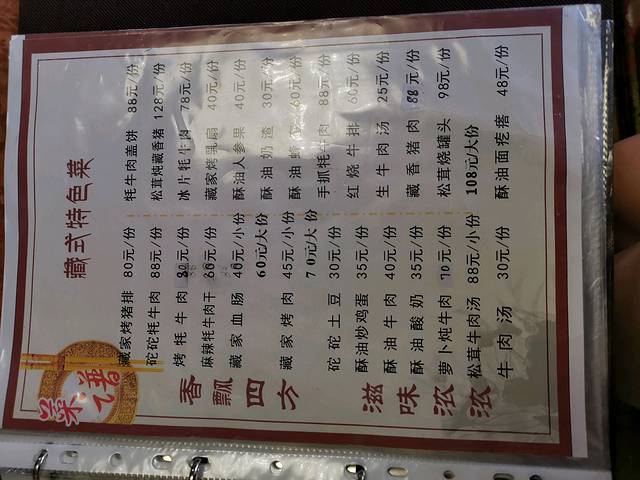 菜谱
藏式特色菜
香飘四方
滋味浓浓
藏家烤猪排 80元/份
砣砣牦牛肉 88元/份
烤牦牛肉 80元/份
麻辣牦牛肉干 元/份
藏家血肠 40元/小份
60元/大份
藏家烤肉 45元/小份
70元/大份
砣砣土豆 30元/份
酥油炒鸡蛋 35元/份
酥油牛肉 40元/份
酥油酸奶 35元/份
萝卜炖牛肉 70元/份
松茸牛肉汤 88元/小份
108元/大份
牛肉汤 30元/份
牦牛肉盖饼 88元/份
松茸炖藏香猪 128元/份
冰片牦牛肉 78元/份
藏家烤乳扇 40元/份
酥油人参果 40元/份
酥油奶渣 30元/份
酥油蜂 60元/份
手抓牦牛肉 88元/份
红烧牛排 元/份
生牛肉汤 25元/份
藏香猪肉 88元/份
松茸烧罐头 98元/份
酥油面疙瘩 48元/份